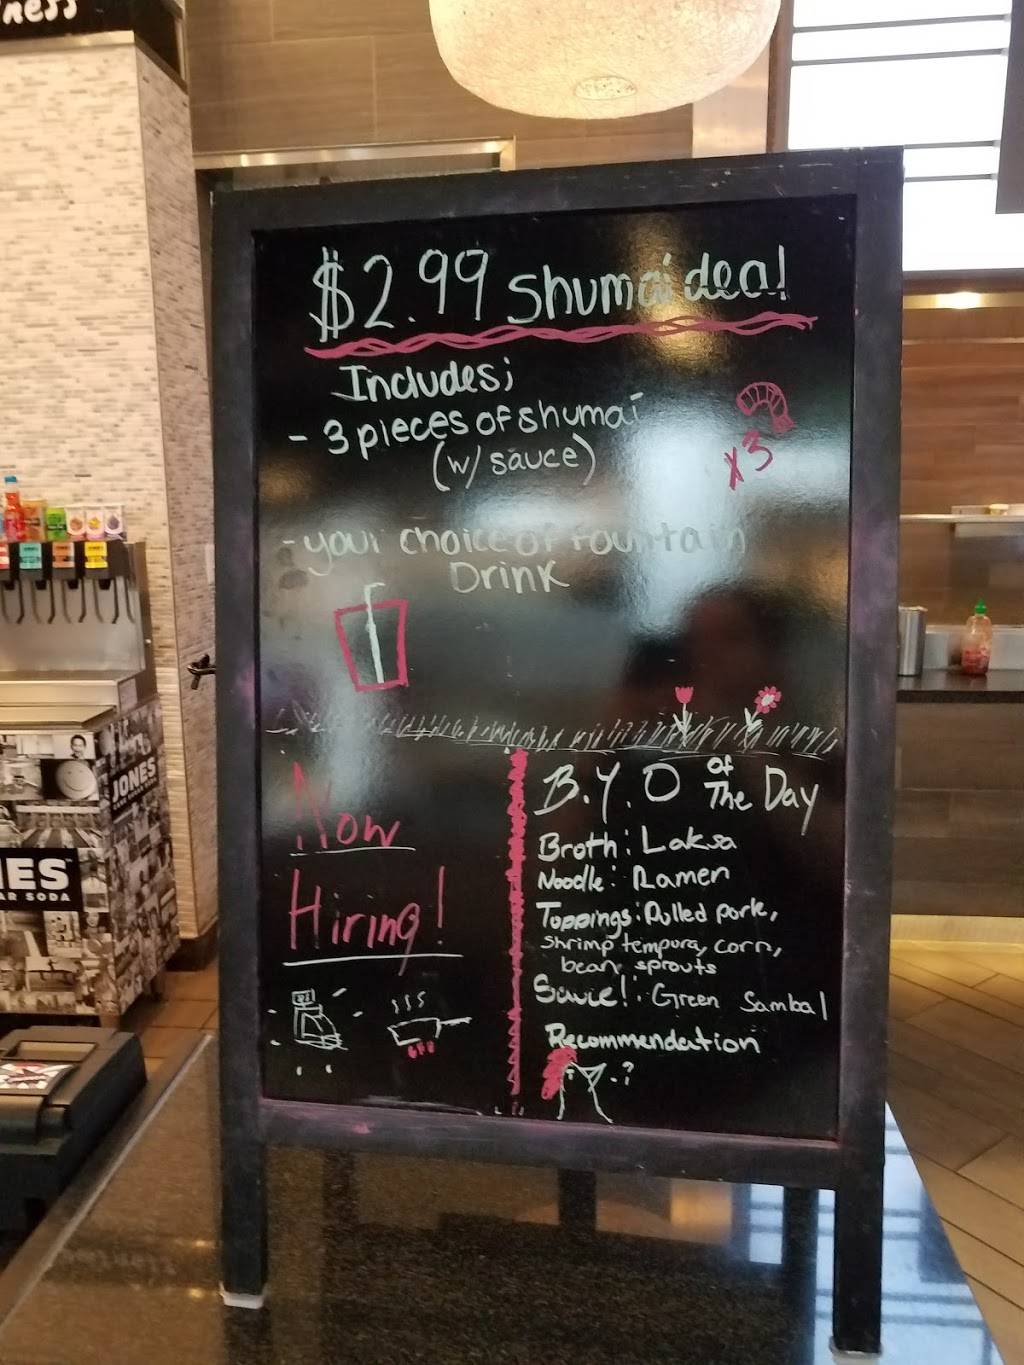 ness
$2.99 shumai deal
Includes;
- 3 pieces of shumai
(w/ sauce)
x3
- your choice of fountain
Drink
Now
Hiring!
B.Y.O of The Day
Broth: Laksa
Noodle: Ramen
Toppings: Pulled pork,
shrimp tempura, corn,
bean sprouts
Sauce!: Green Sambal
Recommendation
?
JONES
NES
AR SODA